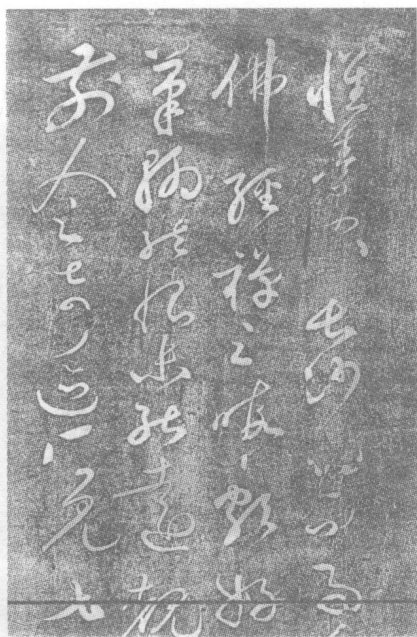 懷素家長沙幼而事
佛經禪之暇頗好
筆翰然恨未能遠覩
前人之奇迹所見甚